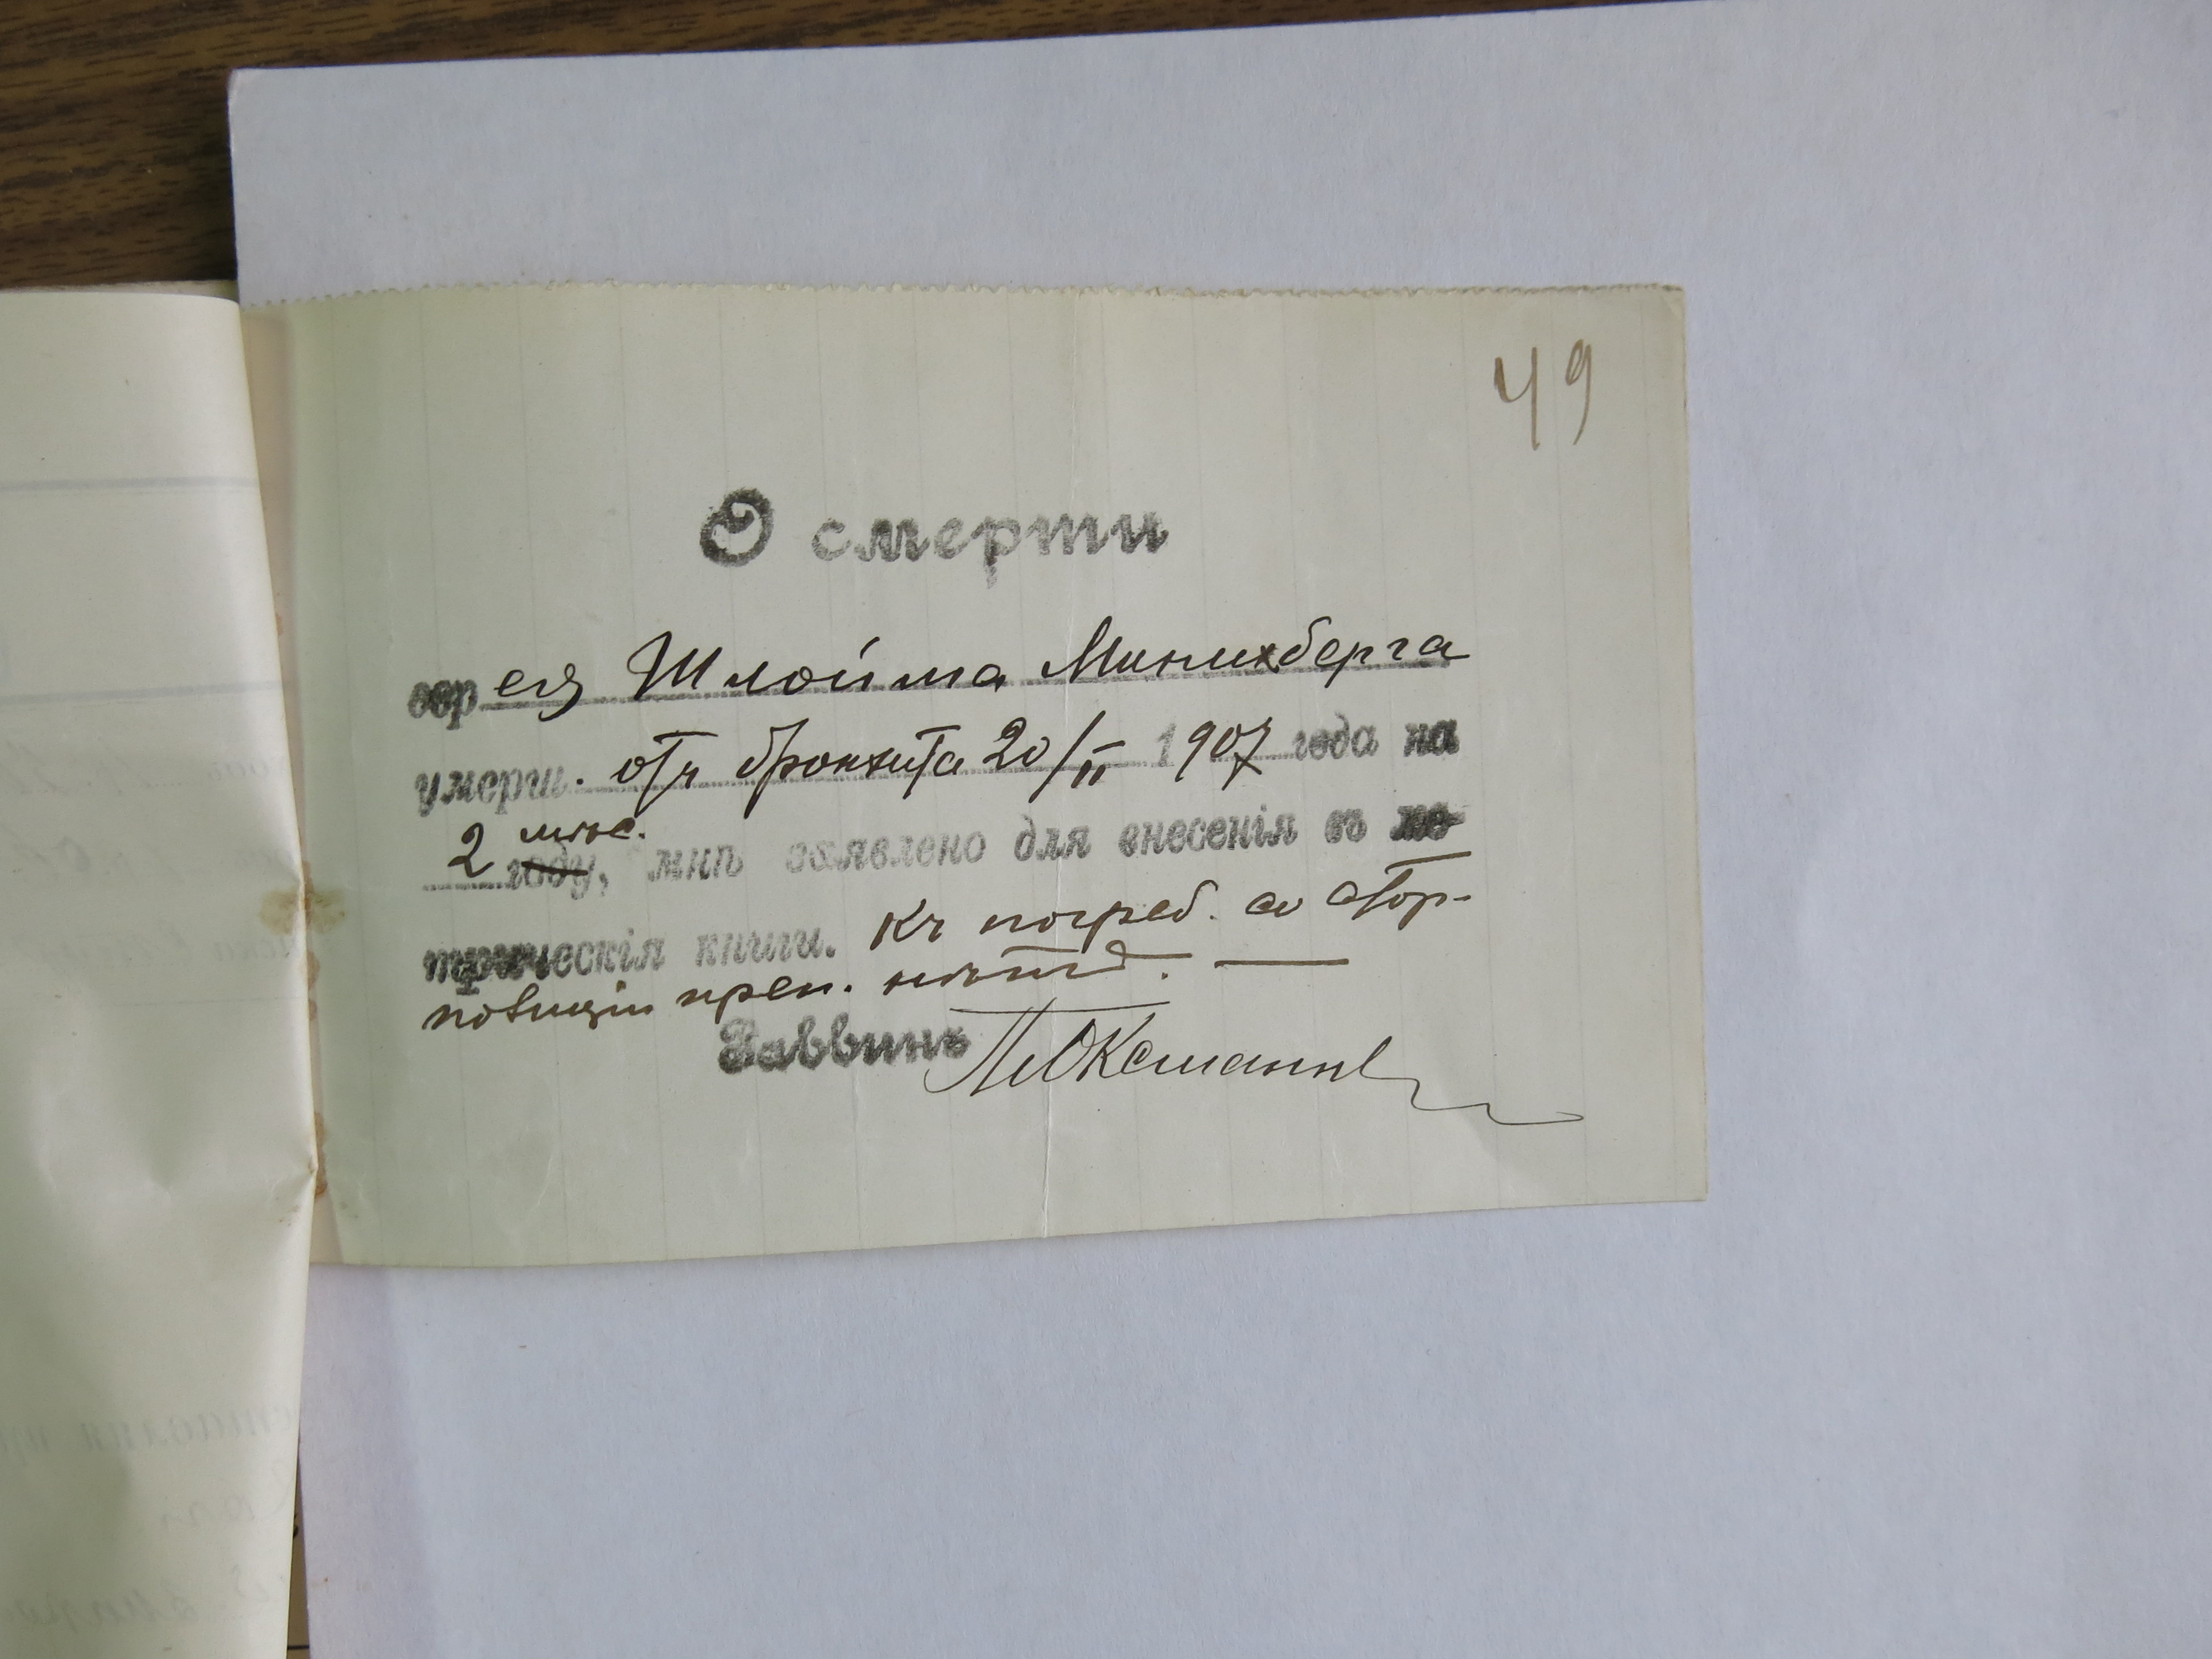 49
О смерти
евр ея Шлойма Минихберга
умерш. отъ бронхита 20/II 1907 года на
2 мѣс. году, мнѣ заявлено для внесенія въ ме
трическія книги. Къ погреб. со стор.
полиціи преп. нѣтъ.
Раввинъ